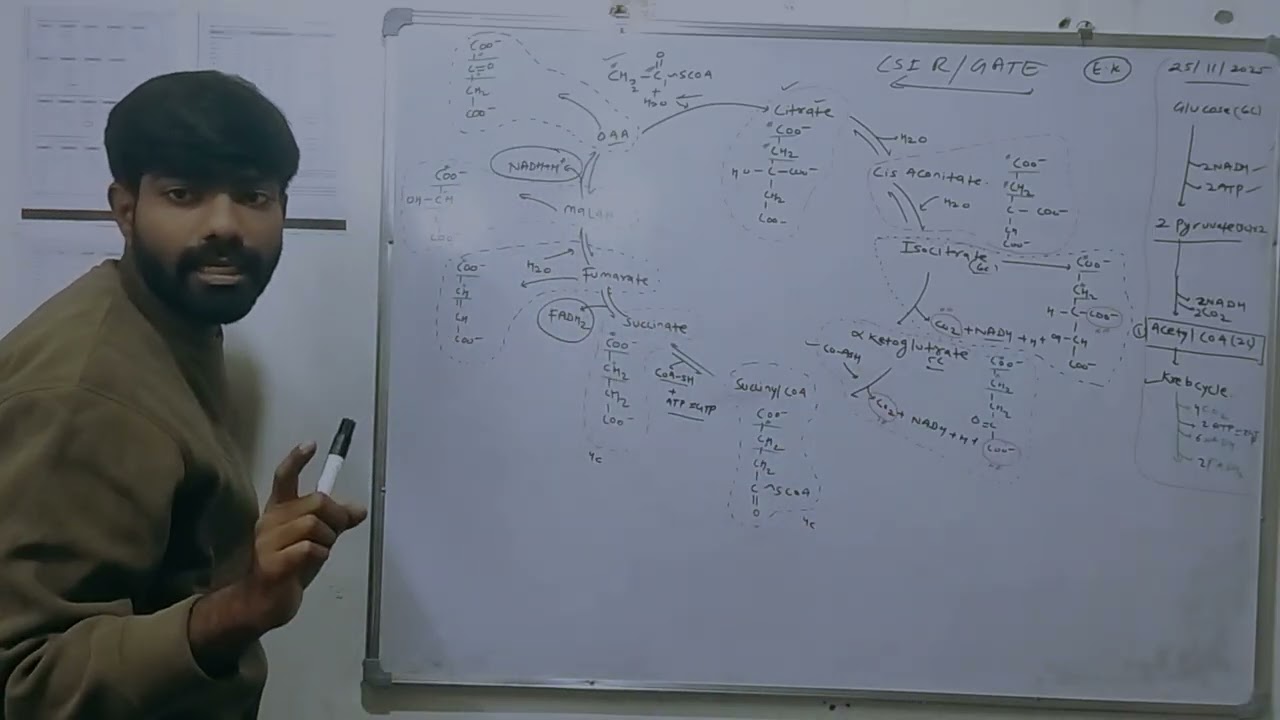 CSIR/GATE
E.K
25/11/2025
Glucose(6C)
2NADH
2ATP
2 Pyruvate
2NADH
2CO2
① Acetyl COA(2C)
Kreb cycle
COO-
C=O
CH2
COO-
CH2-C~SCOA
O
+
H2O
OAA
Citrate
COO-
CH2
HO-C-COO-
CH2
COO-
H2O
Cis Aconitate
COO-
CH2
C-COO-
CH
COO-
H2O
Isocitrate
(6C)
COO-
CH2
H-C-COO-
CH
COO-
CO2+NADH+H+
α Ketoglutrate
5C
COO-
CH2
CH2
O=C
COO-
CO-ASH
CO2+NADH+H+
Succinyl COA
COO-
CH2
CH2
C~SCOA
O
4C
COA-SH
+
ATP=GTP
Succinate
COO-
CH2
CH2
COO-
4C
FADH2
Fumarate
COO-
CH
CH
COO-
H2O
COO-
OH-CH
COO-
NADH+H+